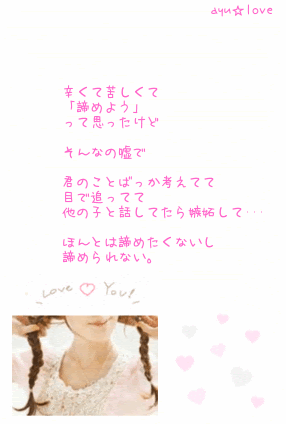 ayu☆love
辛くて苦しくて
「諦めよう」
って思ったけど
そんなの嘘で
君のことばっか考えてて
目で追ってて
他の子と話してたら嫉妬して･･･
ほんとは諦めたくないし
諦められない。
Love ♡ You!